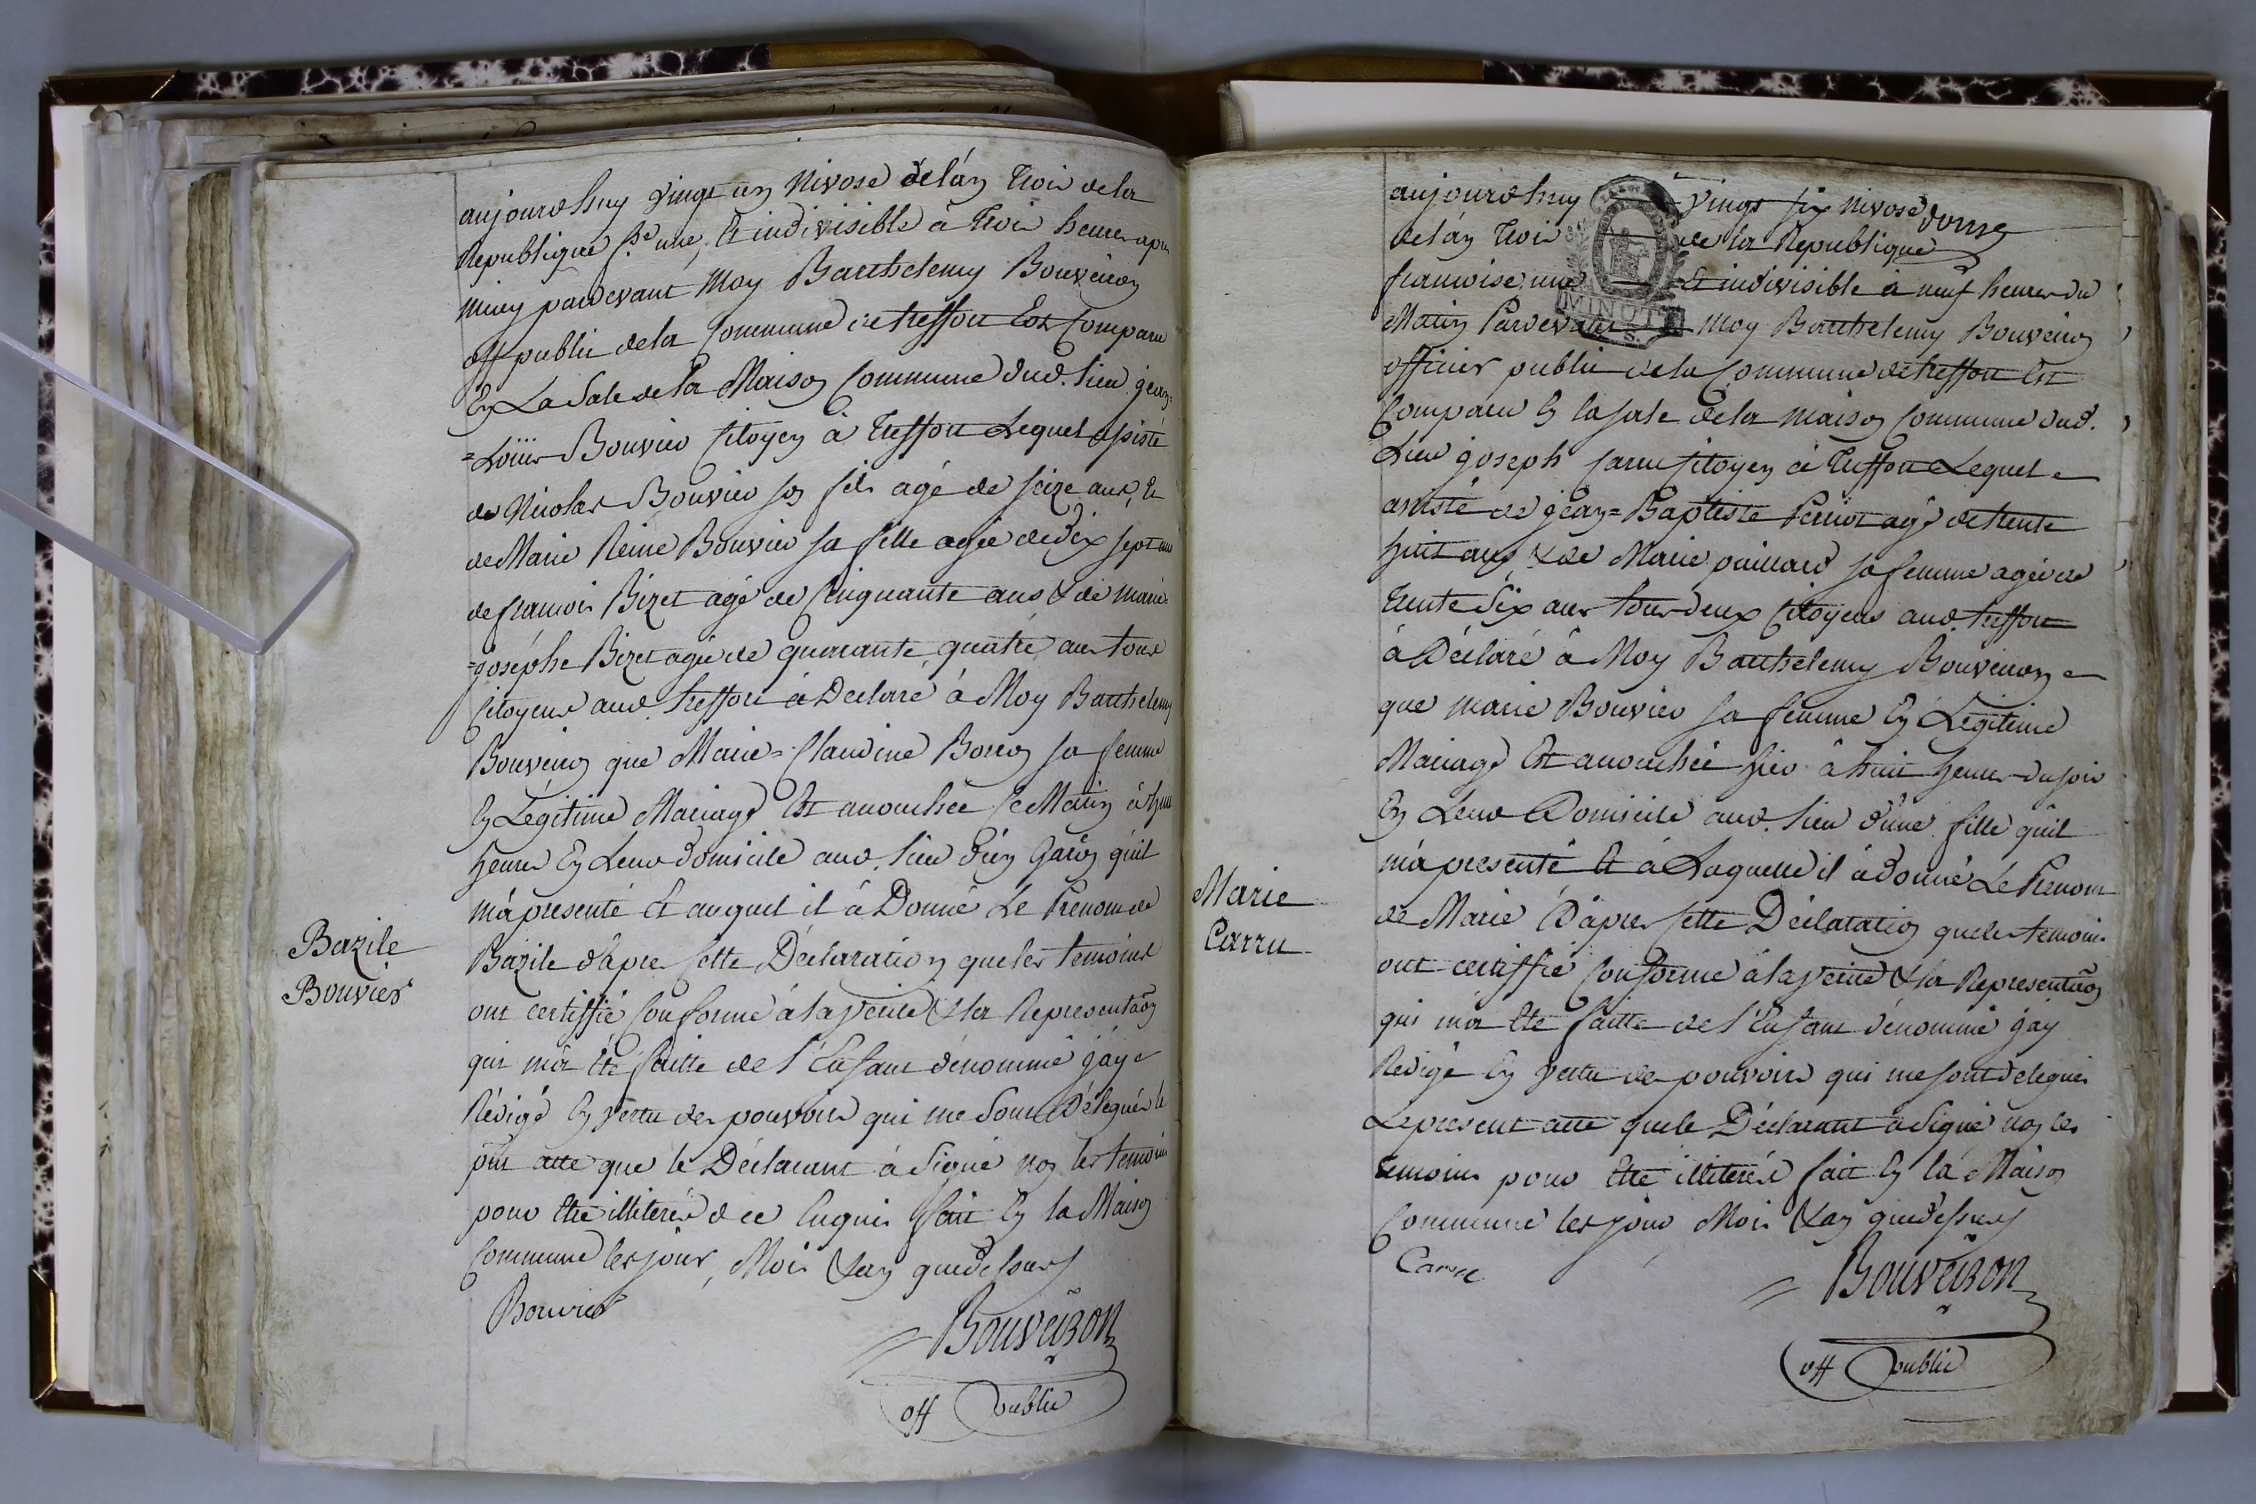 aujourdhuy vingt un Nivose delán trois dela
Republique f.se une, et indivisible à trois heures après
midy pardevant Moy Barthelemy Bouveiron
off public dela Commune de treffort Est Comparu
En La Sale de la Maison Commune dud. lieu jean=
=Loüis Bouvier Citoyen à Treffort Lequel assisté
de Nicolas Bouvier son fils agé de seize ans, Et
de Marie Reine Bouvier sa fille agée de dix sept ans
de francois Bizet agé de Cinquante ans & de marie=
=josephe Bizet agée de quarante quatre ans tous
Citoyens aud. treffort à Declaré à Moy Barthelemy
Bouveiron que Marie=Claudine Borron sa femme
En Légitime Mariage Est accouchée Ce Matin à
heures En Leur domicile aud. lieu d'un Garçon qu'il
má presenté Et auquel il à Donné Le Prenom de
Bazile d'apres Cette Déclaration que les temoins
ont certiffié Conforme à la verité & la Representaõn
qui má été faitte de l'Enfant dénommé j'ay
Rédigé En vertu des pouvoirs qui me sont Délegués le
pñt atte que le Déclarant à Signé non les temoins
pour être illiterés de ce Enquis fait En la Maison
Commune les jour, Mois & an que dessus
Bouvier
Bouveiron
off public
Bazile
Bouvier
aujourdhuy vingt six Nivose
delán trois de la Republique
francoise une Et indivisible à neuf heures du
Matin Pardevant Moy Barthelemy Bouveiron
officier public dela Commune de treffort Est
Comparu En la sale dela maison Commune dud.
Lieu joseph Carru Citoyen à Treffort Lequel
assisté de jean=Baptiste Perriot agé de trente
huit ans & de Marie puillard sa femme agée de
trente Six ans tous deux Citoyens aud. treffort
à Déclaré à Moy Barthelemy Bouveiron
que marie Bouvier sa femme En Légitime
Mariage Est accouchée hier à huit heures du soir
En Leur Domicile aud. lieu d'une fille qu'il
má presenté Et à Laquelle il à donné Le Prenom
de Marie D'apres Cette Déclaration que les temoins
ont certiffié Conforme à la verité & la Representaõn
qui má été faitte de l'Enfant dénommé j'ay
Redigé En vertu des pouvoirs qui me sont delegués
Le present atte que le Déclarant à Signé non les
temoins pour être illiterés fait En la Maison
Commune les jour Mois & an que dessus
Carru
Bouveiron
off public
Marie
Carru
MINUTE